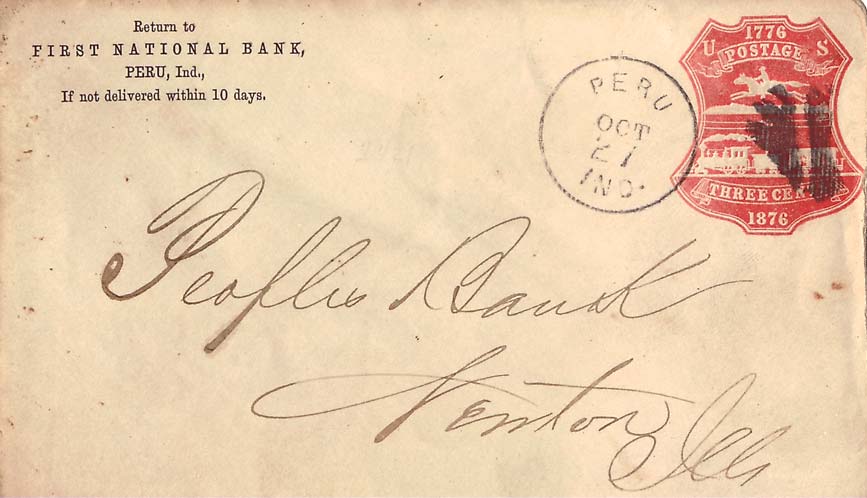 Return to
FIRST NATIONAL BANK,
PERU, Ind.,
If not delivered within 10 days.
PERU
OCT
27
IND.
1776
U POSTAGE S
THREE CENTS
1876
Peoples Bank
Newton Ills